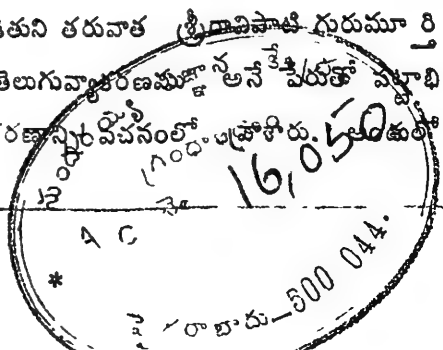 తుని తరువాత శ్రీరావిపాటి గురుమూర్తి
తెలుగువ్యాకరణము అనే పేరుతో పట్టాభి
రణాన్ని వచనంలో వ్రాశారు. అందులో
16,050
* రాబాదు-500 044.